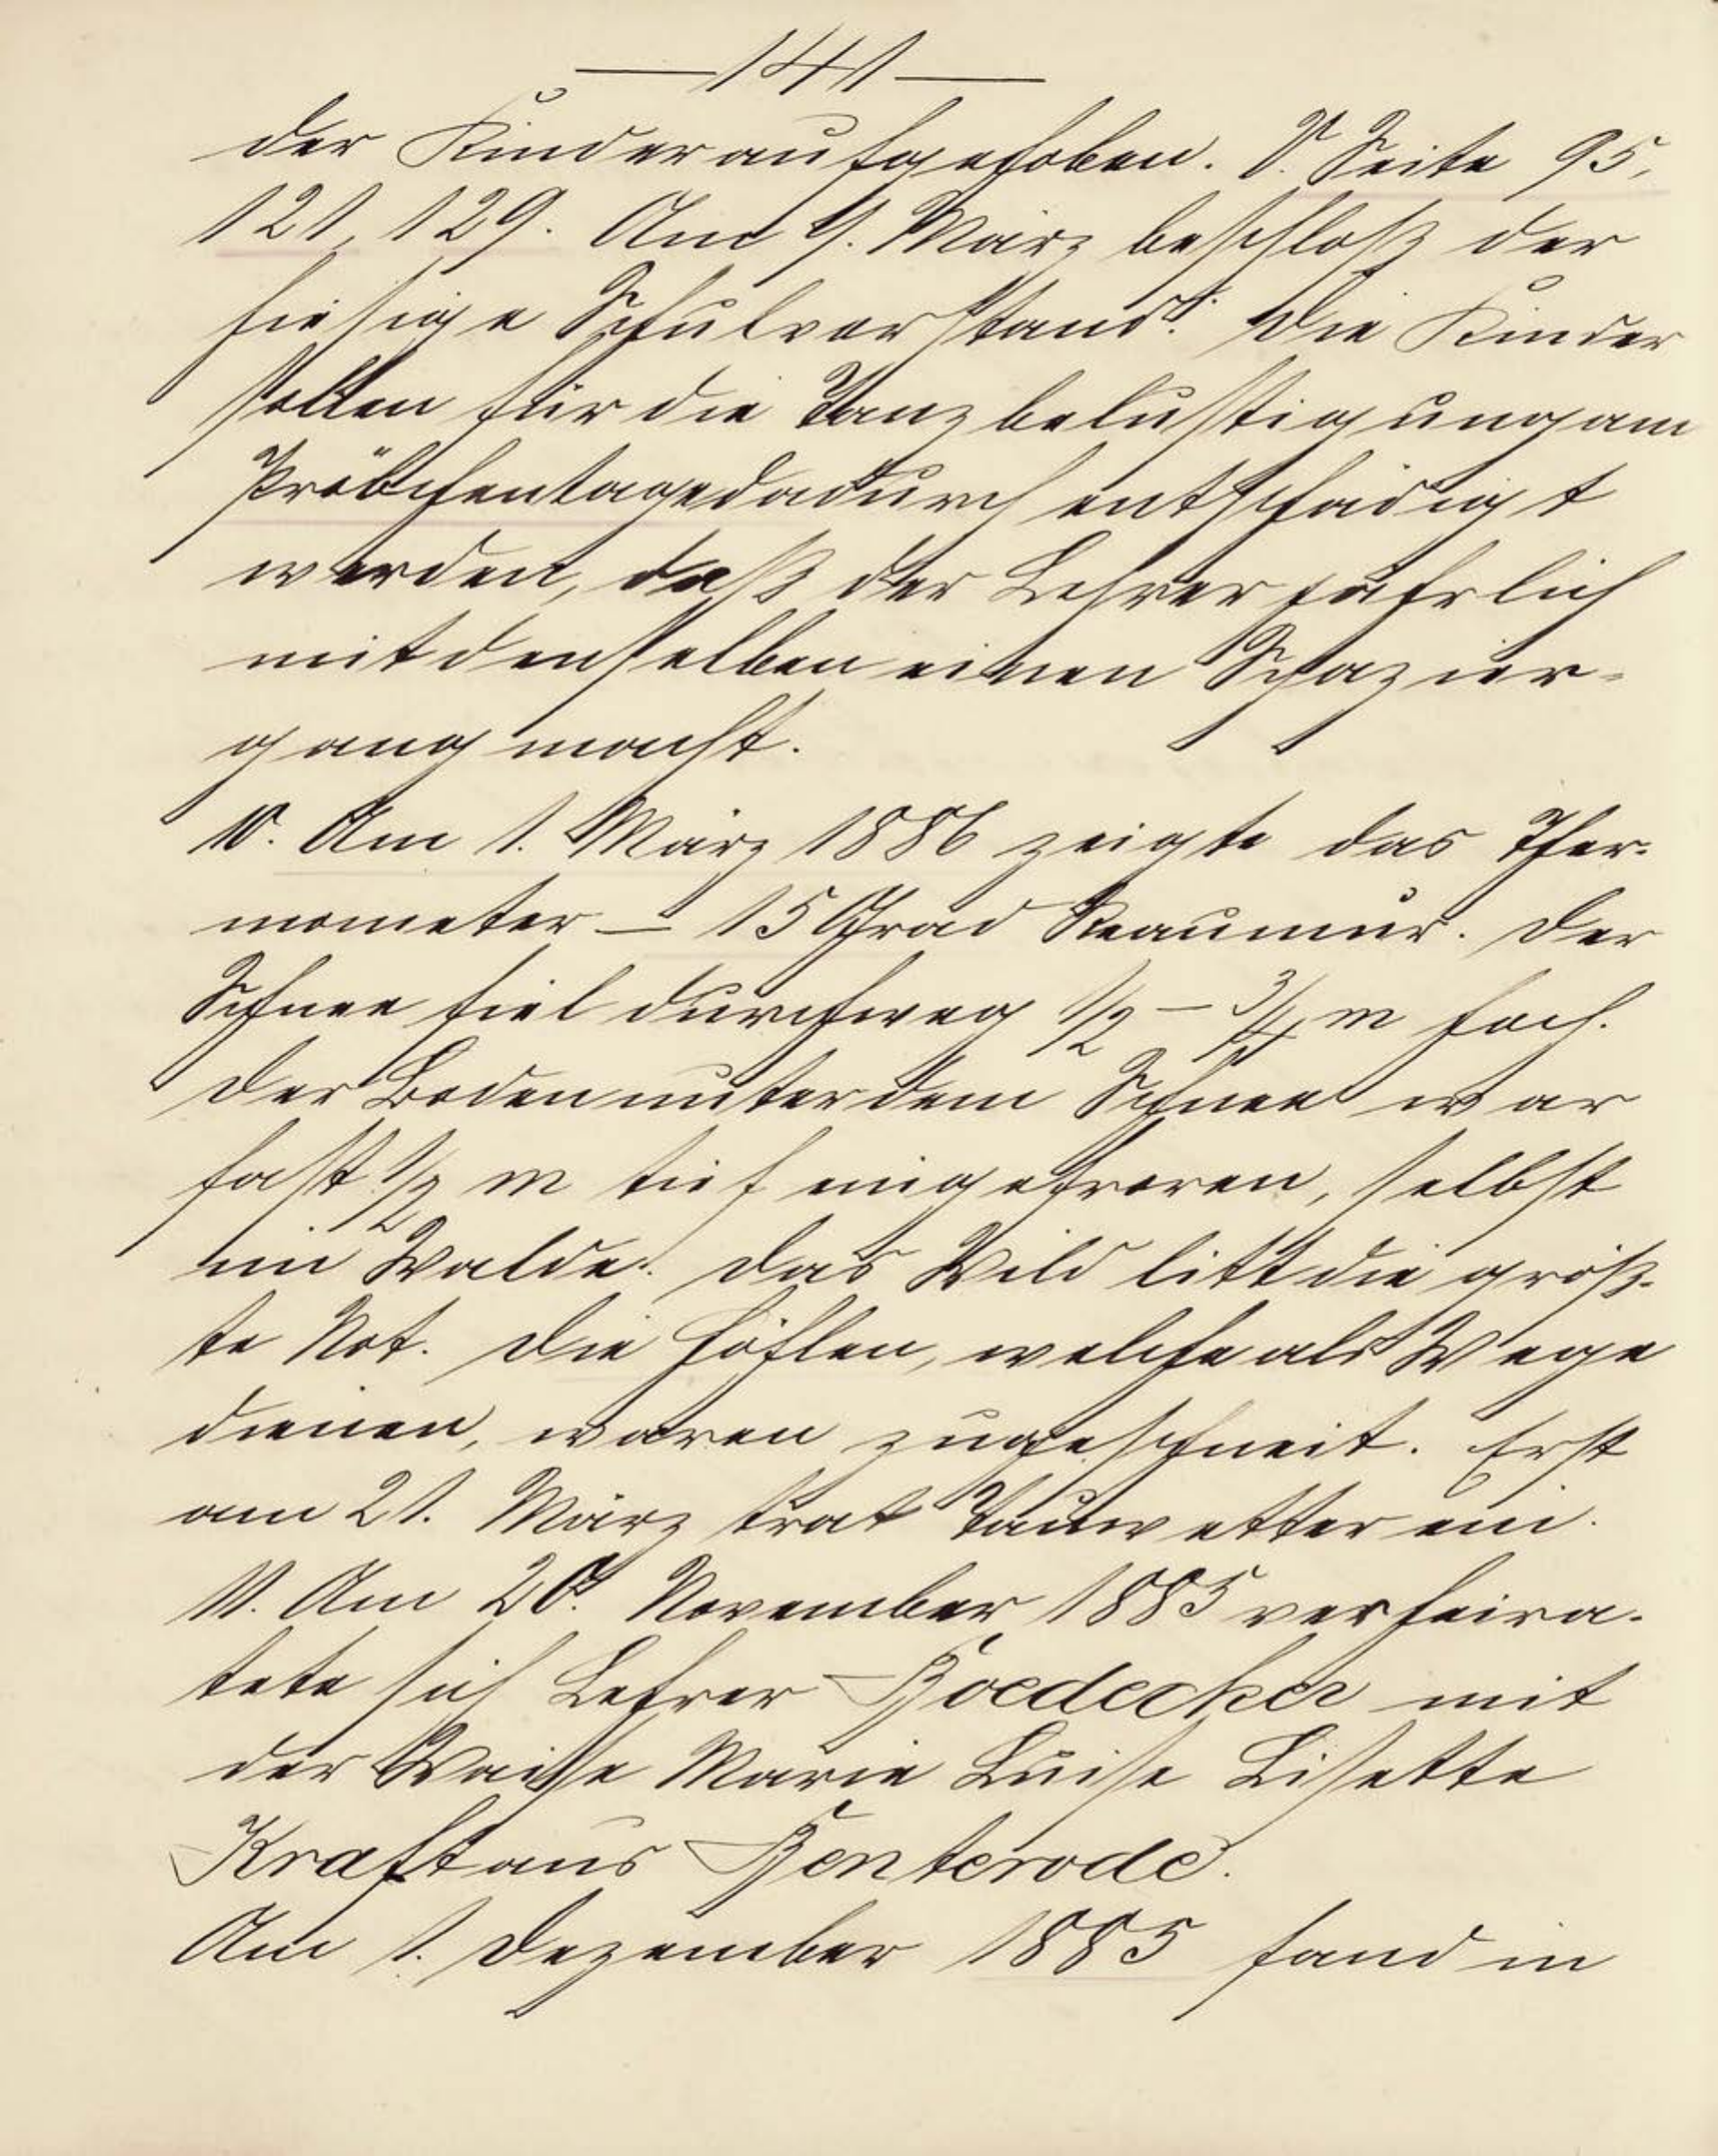 —141—
der Kinder aufgehoben. V. Seite 95,
121, 129. Am 9. März beschloß der
hiesige Schulvorstand: Die Kinder
sollen für die Tanzbelustigung am
Pröbchentage dadurch entschädigt
werden, daß der Lehrer jährlich
mit denselben einen Spazier-
gang macht.
10. Am 1. März 1886 zeigte das Ther-
mometer – 15 Grad Reaumur. Der
Schnee fiel durchweg 1/2 – 3/4 m hoch.
Der Boden unter dem Schnee war
fast 1/2 m tief eingefroren, selbst
im Walde. Das Wild litt die größ-
te Not. Die Höhlen, welche als Wege
dienen, waren zugeschneit. Erst
am 21. März trat Tauwetter ein.
11. Am 20. November 1885 verheira-
tete sich Lehrer Boedecker mit
der Waise Marie Luise Lisette
Kraft aus Benterode.
Am 1. Dezember 1885 fand in